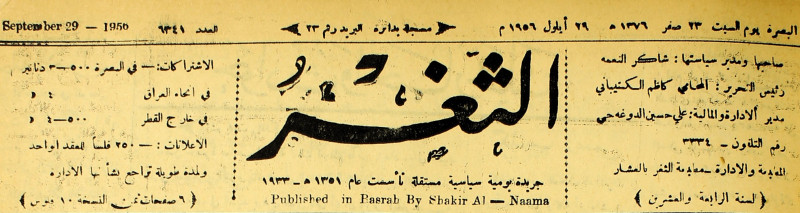 البصرة يوم السبت ٢٣ صفر ١٣٧٦ ه ٢٩ أيلول ١٩٥٦ م
مسجلة بدائرة البريد رقم ٢٣
العدد ٦٣٤١
September 29 - 1956
صاحبها ومدير سياستها : شاكر النعمه
رئيس التحرير : المحامي كاظم الكشتيباني
مدير الادارة والمالية : علي حسين الدوغه جي
رقم التلفون - ٣٣٣٤
المطبعة والادارة - مطبعة الثغر بالعشار
( لسنة الرابعة والعشرين )
الثغر
جريدة يومية سياسية مستقلة تأسست عام ١٣٥١ ه - ١٩٣٣
Published in Basrah By Shakir Al - Naama
الاشتراكات : - في البصرة ٥٠٠ - ٣ دنانير
في انحاء العراق ٤ د
في خارج القطر ٥٠٠ - ٤ د
الاعلانات : - ٢٥٠ فلساً للعقد الواحد
ولمدة طويلة تراجع بشأنها الادارة
( ٦ صفحات ثمن النسخة ١٠ فلوس )